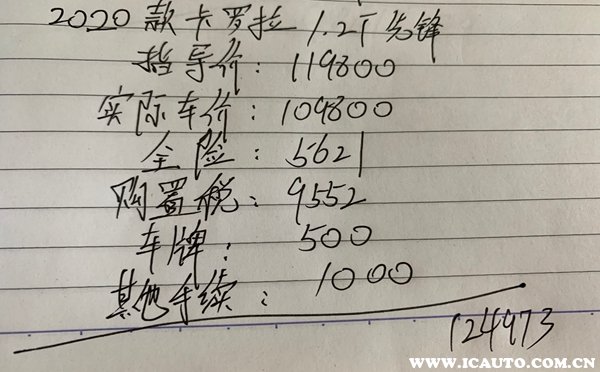 2020款卡罗拉 1.2T先锋
指导价：119800
实际车价：109800
全险：5621
购置税：9552
车牌：500
其他手续：1000
124973
WWW.ICAUTO.COM.CN